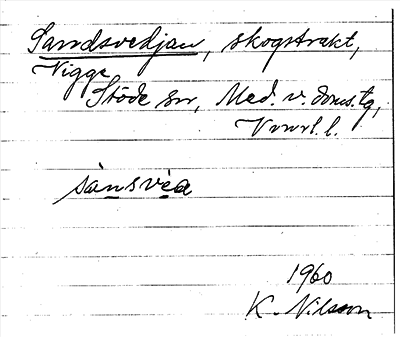 Sandsvedjan, skogstrakt,
Vigge
Stöde sn, Med. v. doms. tg,
Vnrl. l.
sànsvèa
1960
K. Nilsson